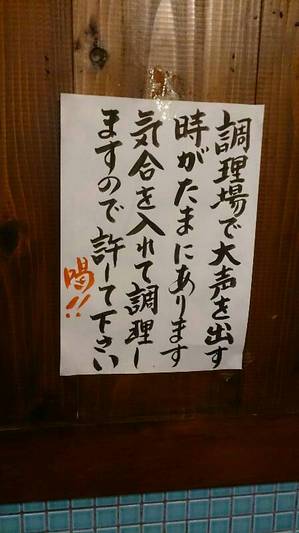 調理場で大声を出す
時がたまにあります
気合を入れて調理し
ますので許して下さい
喝!!